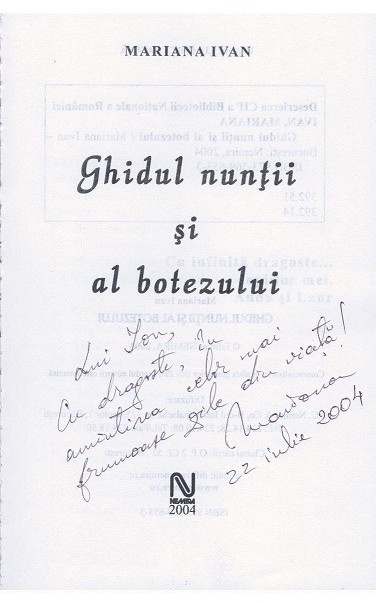 MARIANA IVAN
Ghidul nunţii
şi
al botezului
Lui Ion,
Cu dragoste, în
amintirea celor mai
frumoase zile din viață!
Mariana
22 iulie 2004
NEMIRA
2004